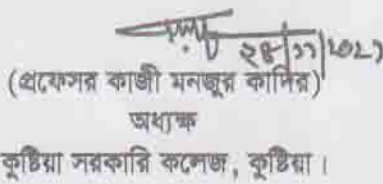 ২৪|১১|২০২১
(প্রফেসর কাজী মনজুর কাদির)
অধ্যক্ষ
কুষ্টিয়া সরকারি কলেজ, কুষ্টিয়া।